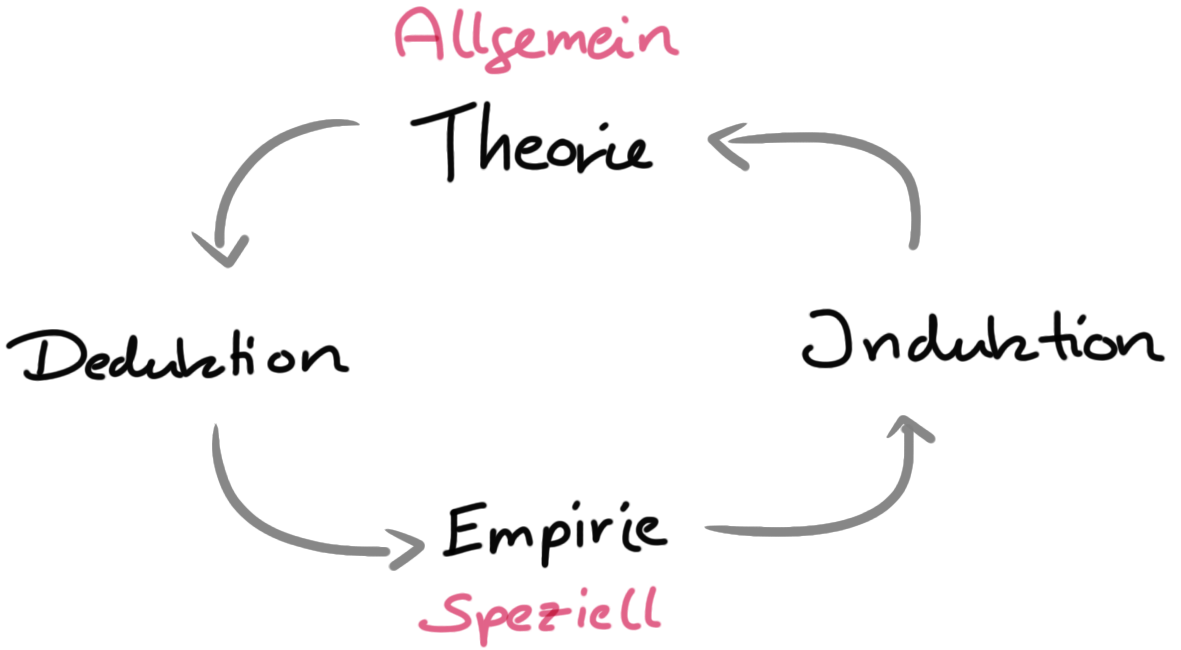 Allgemein
Theorie
Deduktion
Induktion
Empirie
Speziell